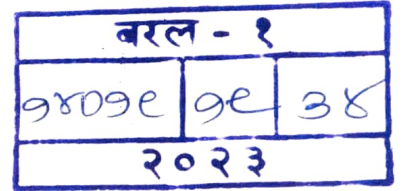 बरल - १
१४०१९ १९ ३४
२०२३